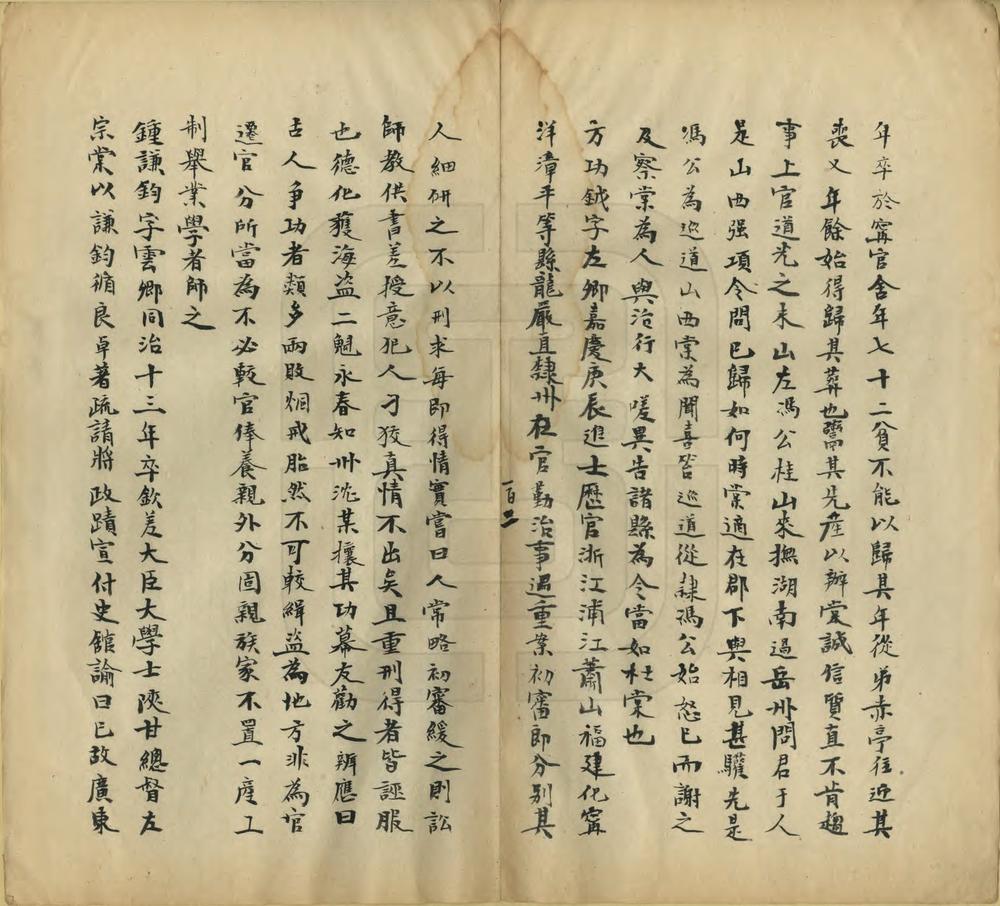 年卒於甯官舍年七十二貧不能以歸其年從弟赤亭往近其
喪又年餘始得歸其葬也鬻其先產以辦棠誠信質直不肯趨
事上官道光之末山左馮公桂山來撫湖南過岳州問君于人
是山西强項令問已歸如何時棠適在郡下輿相見甚驩先是
馮公為巡道山西棠為聞喜笞巡道從隷馮公始怒已而謝之
及察棠為人與治行大嗟異告諸縣為令當如杜棠也
方功鉞字左卿嘉慶庚辰進士歷官浙江浦江蕭山福建化甯
洋漳平等縣龍巖直隸州在官勤治事遇重案初審即分别其
一百二
人細研之不以刑求每即得情實嘗曰人常略初審緩之則訟
師教供書差授意犯人刁狡真情不出矣且重刑得者皆誣服
也德化獲海盗二魁永春知州沈某攘其功幕友勸之辨應曰
古人争功者類多兩敗烟戒胎然不可較緝盗為地方非為官
遷官分所當為不必較官俸養親外分固親族家不置一産工
制舉業學者師之
鍾謙鈞字雲卿同治十三年卒欽差大臣大學士陝甘總督左
宗棠以謙鈞循良卓著疏請將政蹟宣付史館諭曰已故廣東